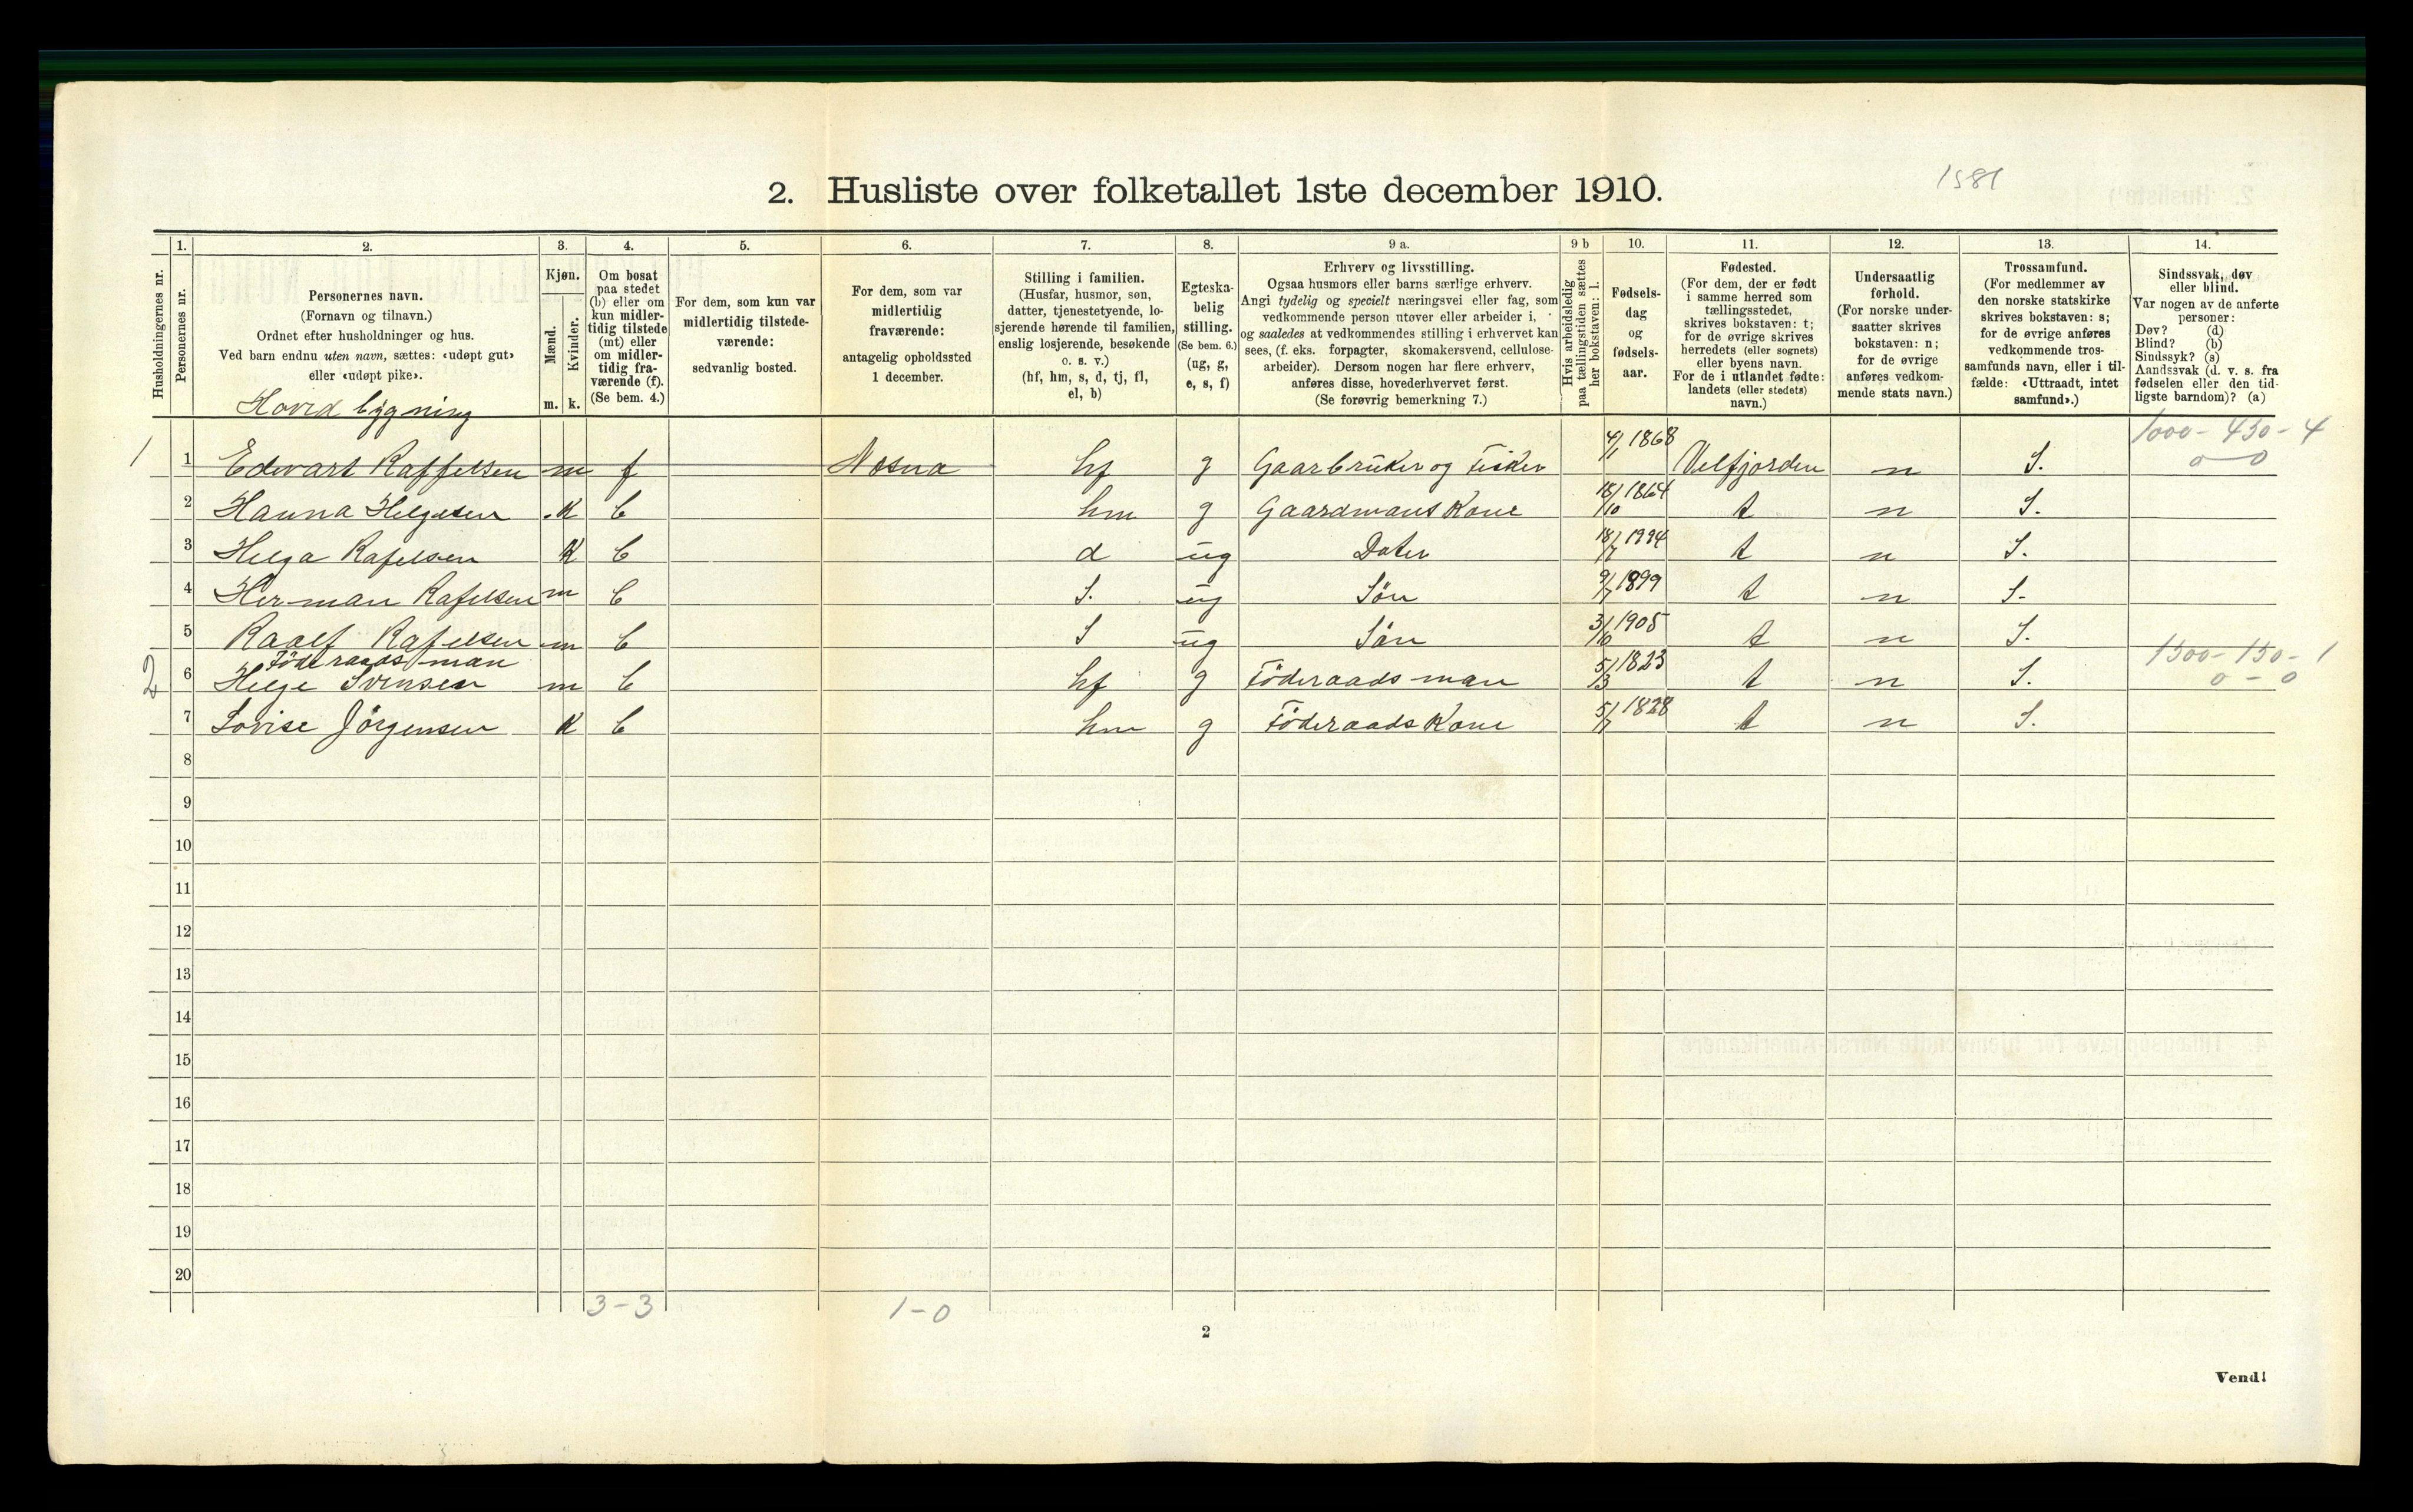 2. Husliste over folketallet 1ste december 1910.
1581
1. 2. 3. 4. 5. 6. 7. 8. 9 a. 9 b 10. 11. 12. 13. 14.
Husholdningernes nr.
Personernes nr.
Personernes navn.
(Fornavn og tilnavn.)
Ordnet efter husholdninger og hus.
Ved barn endnu uten navn, sættes: «udøpt gut»
eller «udøpt pike».
Hoved bygning
Kjøn.
Mænd.
Kvinder.
m. k.
Om bosat
paa stedet
(b) eller om
kun midler-
tidig tilstede
(mt) eller
om midler-
tidig fra-
værende (f).
(Se bem. 4.)
For dem, som kun var
midlertidig tilstede-
værende:
sedvanlig bosted.
For dem, som var
midlertidig
fraværende:
antagelig opholdssted
1 december.
Stilling i familien.
(Husfar, husmor, søn,
datter, tjenestetyende, lo-
sjerende hørende til familien,
enslig losjerende, besøkende
o. s. v.)
(hf, hm, s, d, tj, fl,
el, b)
Egteska-
belig
stilling.
(Se bem. 6.)
(ug, g,
e, s, f)
Erhverv og livsstilling.
Ogsaa husmors eller barns særlige erhverv.
Angi tydelig og specielt næringsvei eller fag, som
vedkommende person utøver eller arbeider i,
og saaledes at vedkommendes stilling i erhvervet kan
sees, (f. eks. forpagter, skomakersvend, cellulose-
arbeider). Dersom nogen har flere erhverv,
anføres disse, hovederhvervet først.
(Se forøvrig bemerkning 7.)
Hvis arbeidsledig
paa tællingstiden sættes
her bokstaven: l.
Fødsels-
dag
og
fødsels-
aar.
Fødested.
(For dem, der er født
i samme herred som
tællingsstedet,
skrives bokstaven: t;
for de øvrige skrives
herredets (eller sognets)
eller byens navn.
For de i utlandet fødte:
landets (eller stedets)
navn.)
Undersaatlig
forhold.
(For norske under-
saatter skrives
bokstaven: n;
for de øvrige
anføres vedkom-
mende stats navn.)
Trossamfund.
(For medlemmer av
den norske statskirke
skrives bokstaven: s;
for de øvrige anføres
vedkommende tros-
samfunds navn, eller i til-
fælde: «Uttraadt, intet
samfund».)
Sindssvak, døv
eller blind.
Var nogen av de anførte
personer:
Døv? (d)
Blind? (b)
Sindssyk? (s)
Aandssvak (d. v. s. fra
fødselen eller den tid-
ligste barndom)? (a)
1000 - 450 - 4
0 - 0
1 1 Edvart Raffelsen m f Nesna hf g Gaarbruker og Fisker 4/1 1868 Velfjorden n S.
2 Hanna Helgesen K b hm g Gaardmans Kone 18/10 1864 t n S.
3 Helga Rafelsen K b d ug Dater 18/7 1994 t n S.
4 Herman Rafelsen m b S. ug Sön 9/7 1899 t n S.
5 Raalf Rafelsen m b S ug Sön 3/10 1905 t n S.
Föderaads man
1500 - 150 - 1
0 - 0
2 6 Helge Svensen m b hf g Föderaads man 5/3 1823 t n S.
7 Lovise Jörgensen K b hm g Föderaads Kone 5/7 1828 t n S.
8
9
10
11
12
13
14
15
16
17
18
19
20
3 - 3 1 - 0
2
Vend!